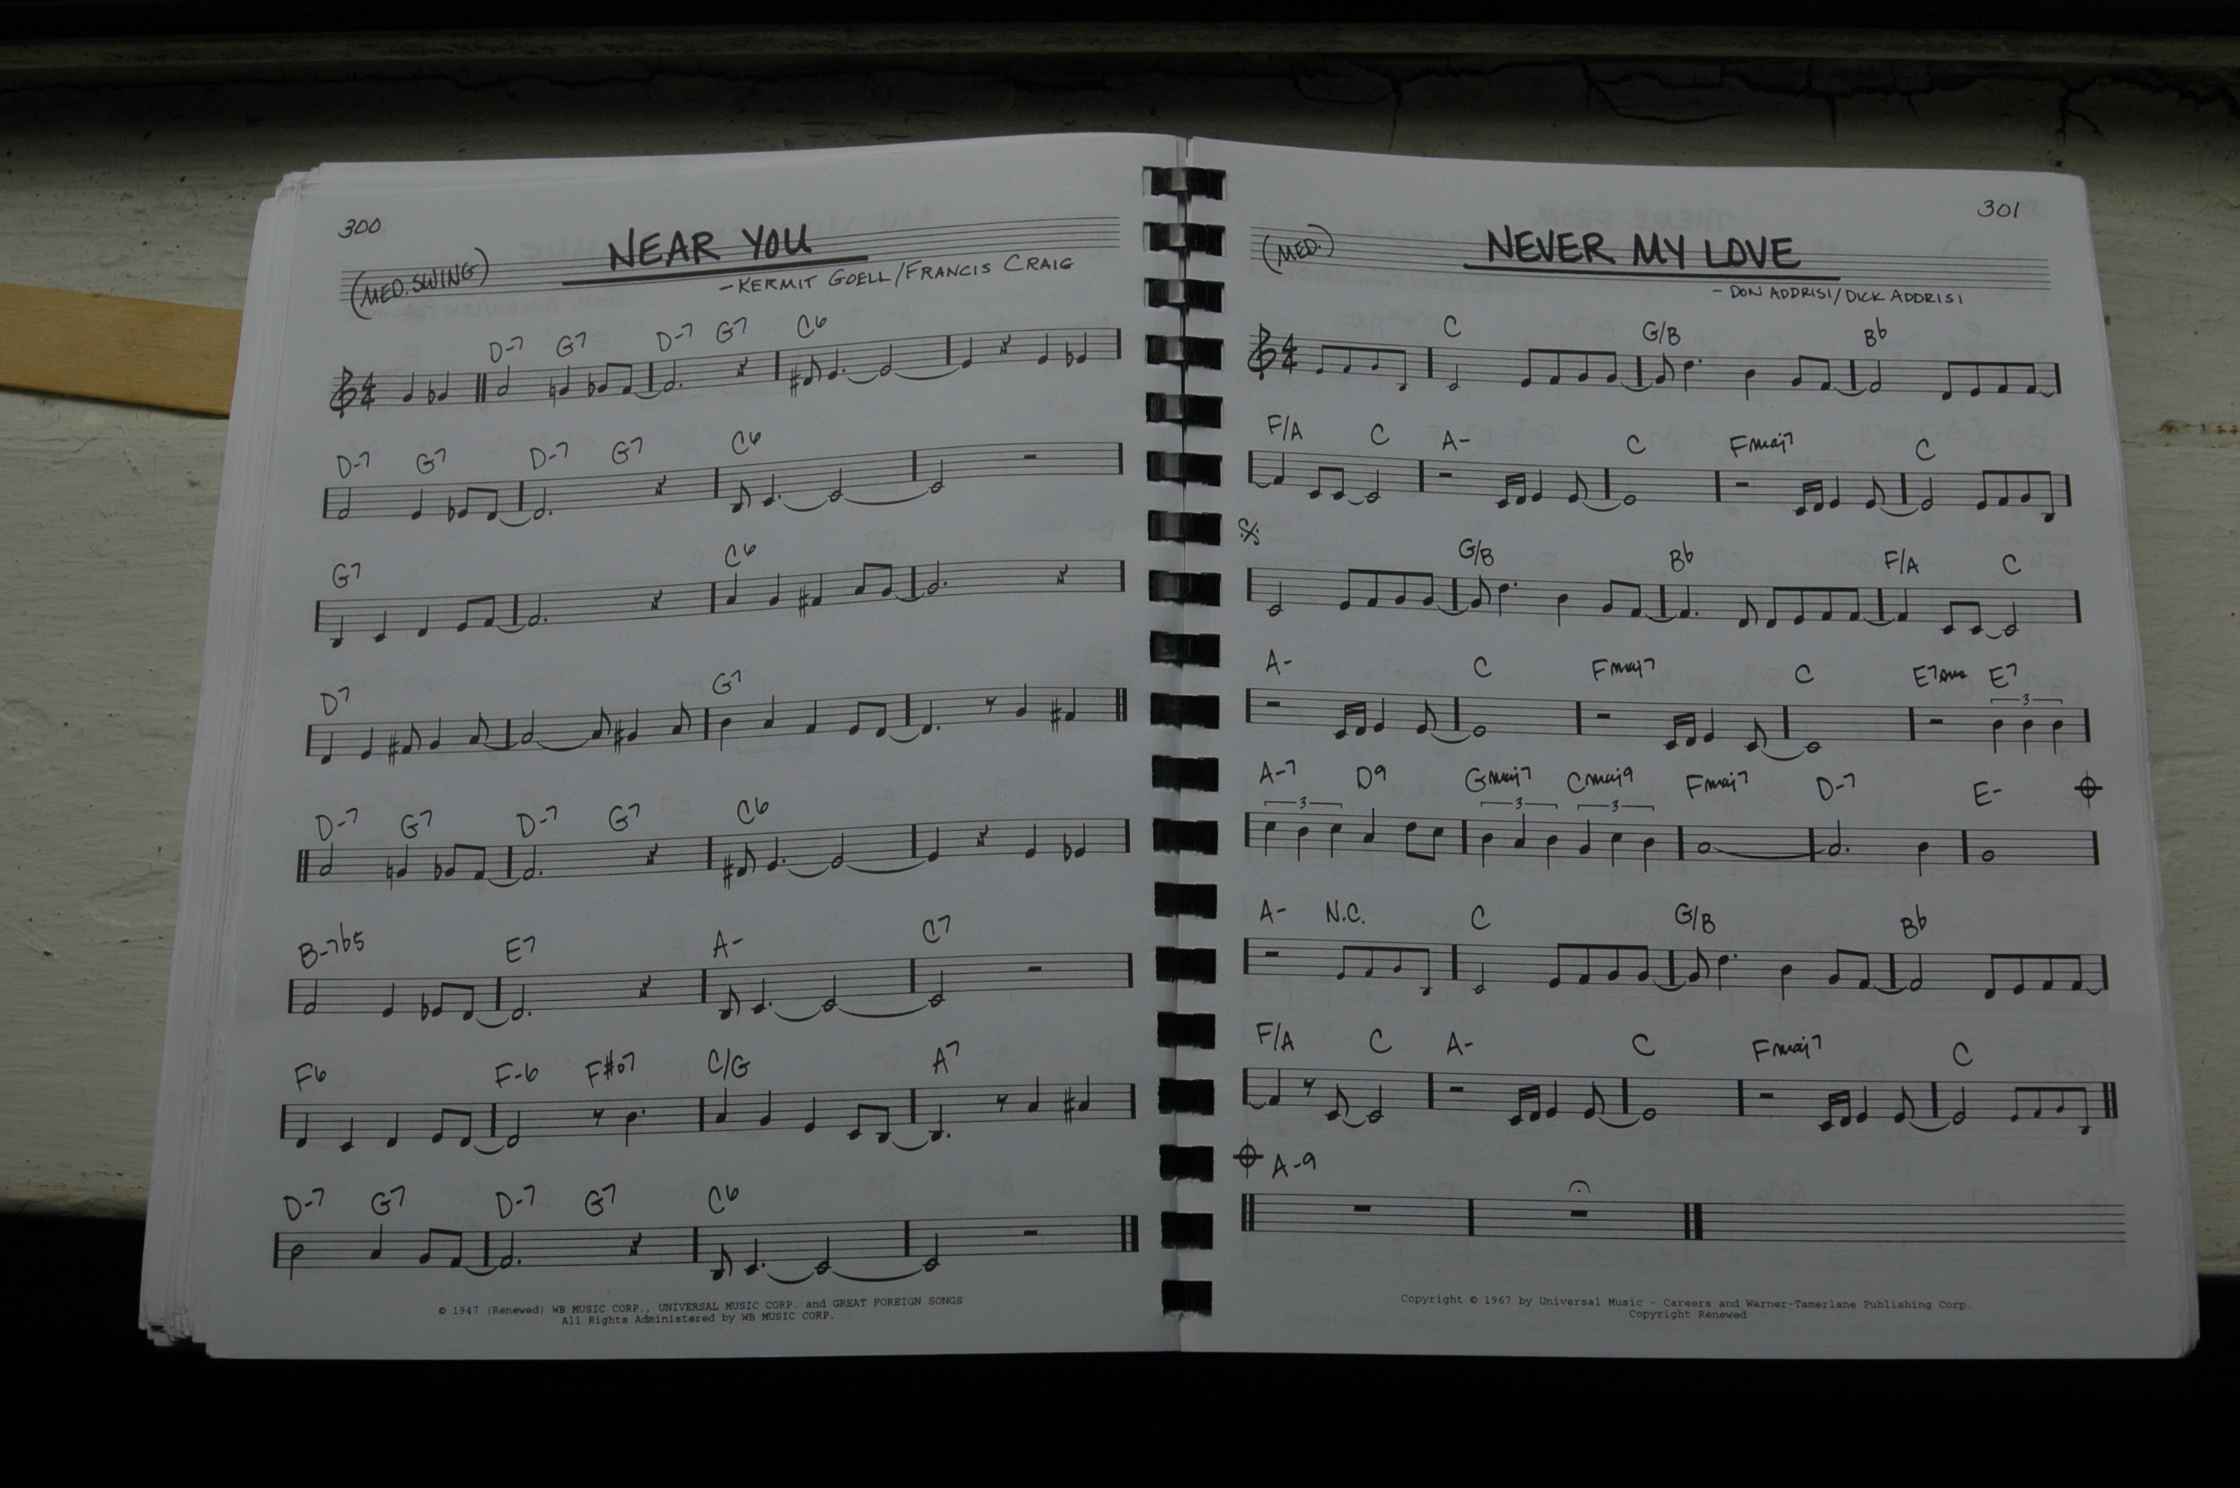 300
NEAR YOU
(MED. SWING)
-KERMIT GOELL/FRANCIS CRAIG
D-7 G7 D-7 G7 C6
D-7 G7 D-7 G7 C6
G7 C6
D7 G7
D-7 G7 D-7 G7 C6
B-7b5 E7 A- C7
F6 F-6 F#o7 C/G A7
D-7 G7 D-7 G7 C6
© 1947 (Renewed) WB MUSIC CORP., UNIVERSAL MUSIC CORP. and GREAT FOREIGN SONGS
All Rights Administered by WB MUSIC CORP.
301
(MED.)
NEVER MY LOVE
- DON ADDRISI/DICK ADDRISI
C G/B Bb
F/A C A- C Fmaj7 C
G/B Bb F/A C
A- C Fmaj7 C E7sus E7
3
A-7 D9 Gmaj7 Cmaj9 Fmaj7 D-7 E-
3 3 3
A- N.C. C G/B Bb
F/A C A- C Fmaj7 C
A-9
Copyright © 1967 by Universal Music - Careers and Warner-Tamerlane Publishing Corp.
Copyright Renewed